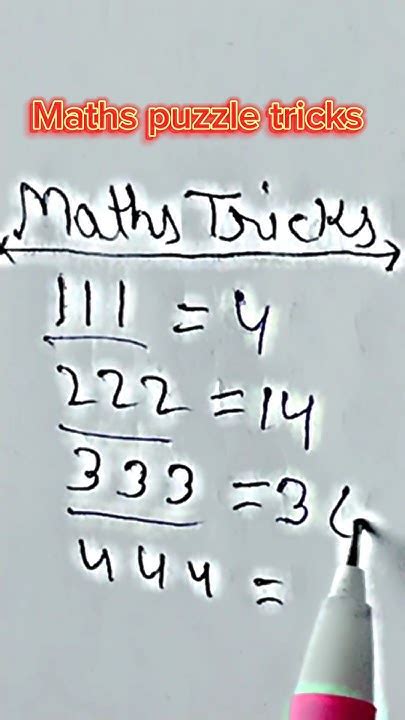 Maths puzzle tricks
Maths Tricks
111 = 4
222 = 14
333 = 36
444 =